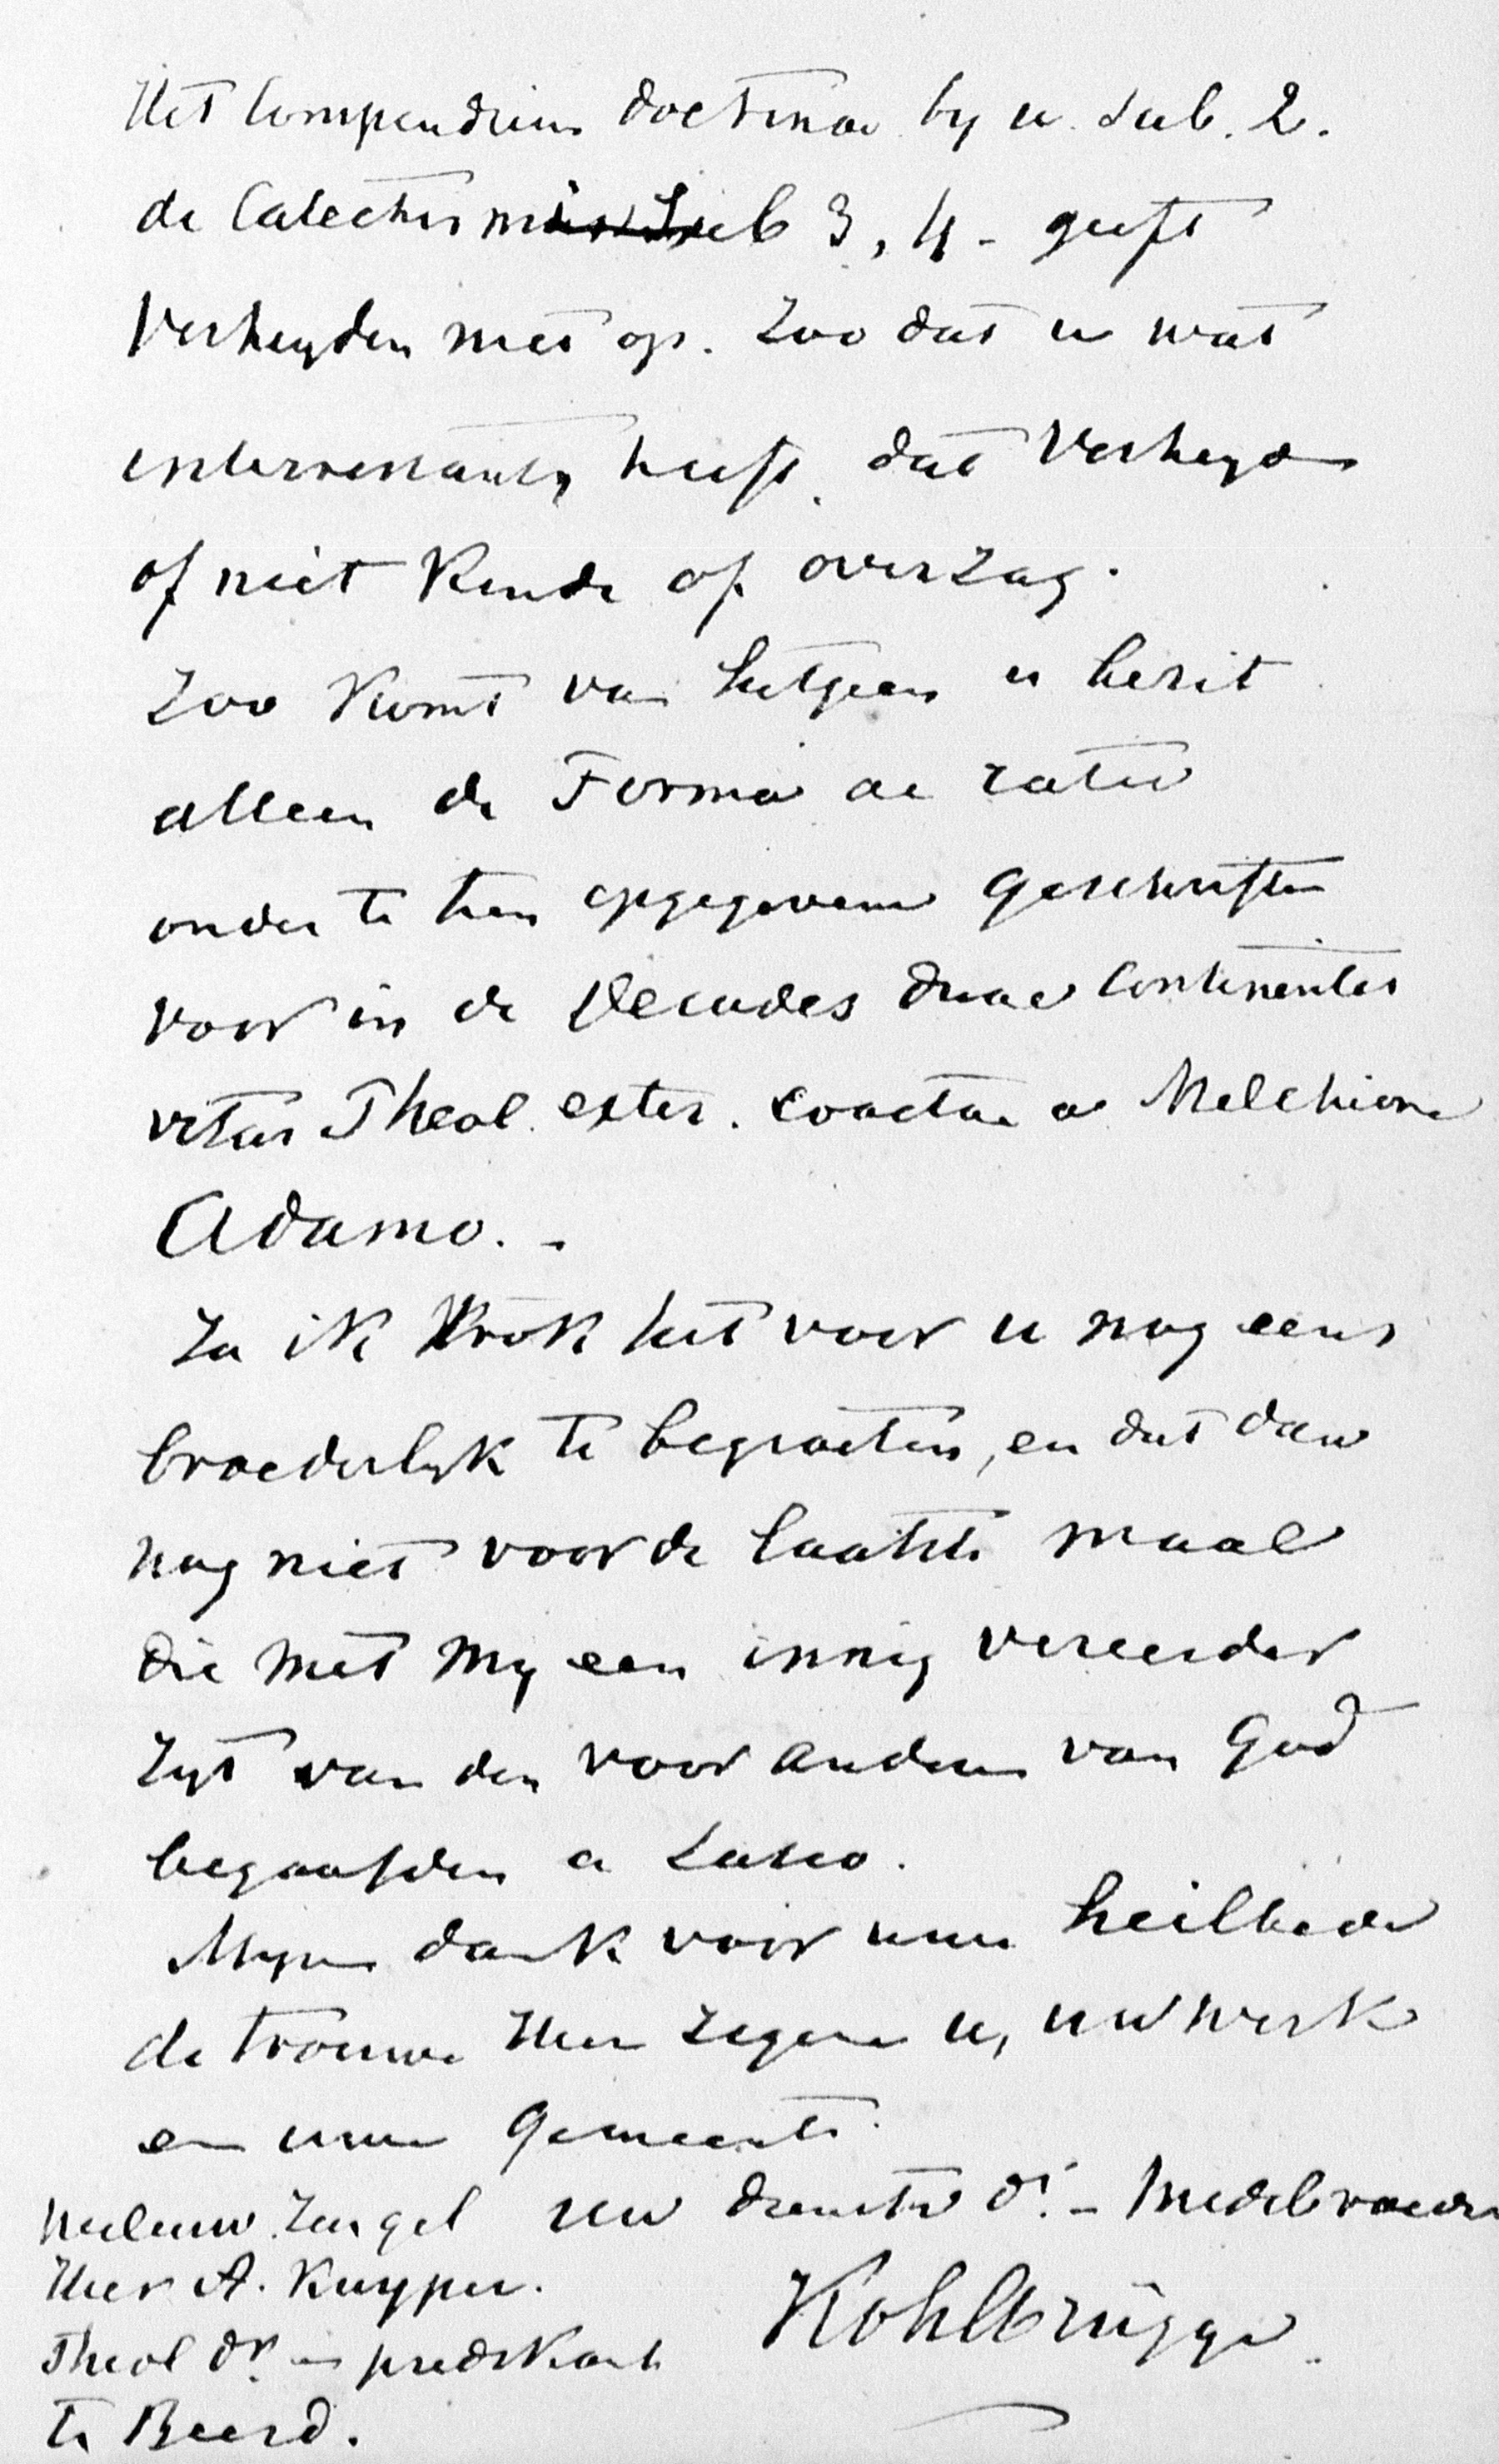 Het Compendium doctrinae by u sub. 2.
de Catechismus sub 3, 4 - geeft
Verheyden niet op. Zoo dat u wat
interressants heeft, dat Verheyden
of niet kende of overzag.
Zoo komt van hetgeen u bezit
alleen de Forma ac ratio
onder te hem opgegevene geschriften
voor in de Decades duae continentes
vitas Theol. exter. coactae a Melchiore
Adamo. -
Ja ik trok het voor u nog eens
broederlyk te begroeten, en dat dan
nog niet voor de laatste maal
die met my een innig vereerder
zyt van den voor anderen van God
begaafden a Lasco.
Mynen dank voor uwe heilbede
de trouwe Heer zegene u, uw werk
en uwe gemeente.
uw dienstw dr. - Medebroeder
Kohlbrügge.
Heer A. Kuyper.
Theol dr. en predikant
te Beesd.